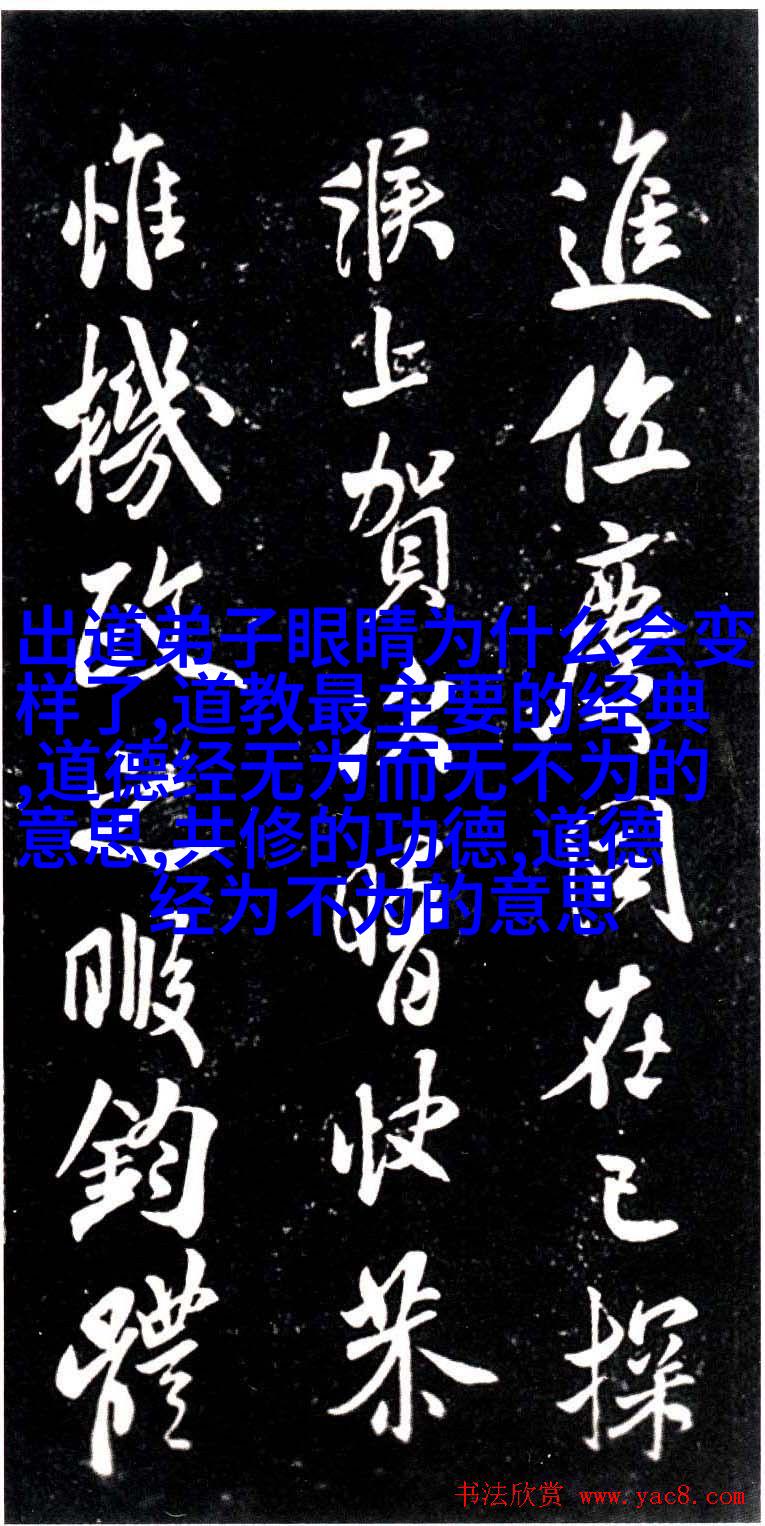 進位慶同在已探
候上賀次晴快恭
惟機政之暇鈞體
出道弟子眼睛为什么会变
样了,道教最主要的经典
,道德经无为而无不为的
意思,共修的功德,道德
经为不为的意思
书法欣赏 www.yac8.com